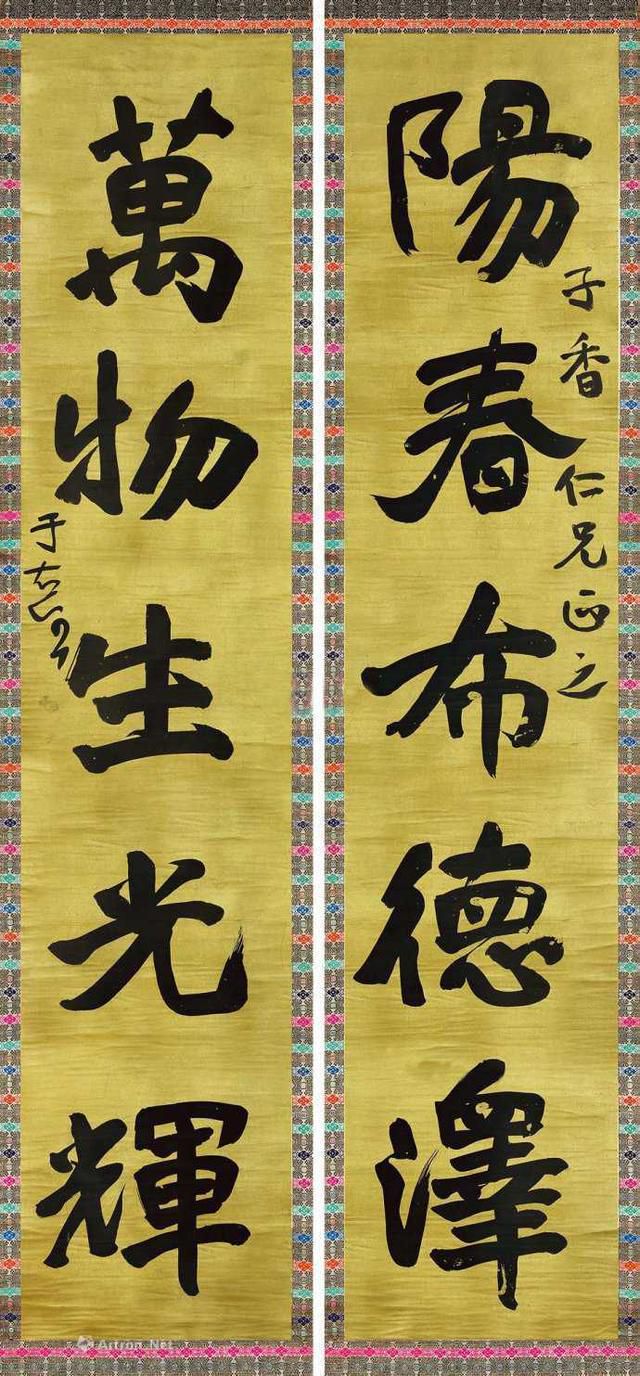 陽春布德澤
子香仁兄正之
萬物生光輝
于右任
Artron.Net